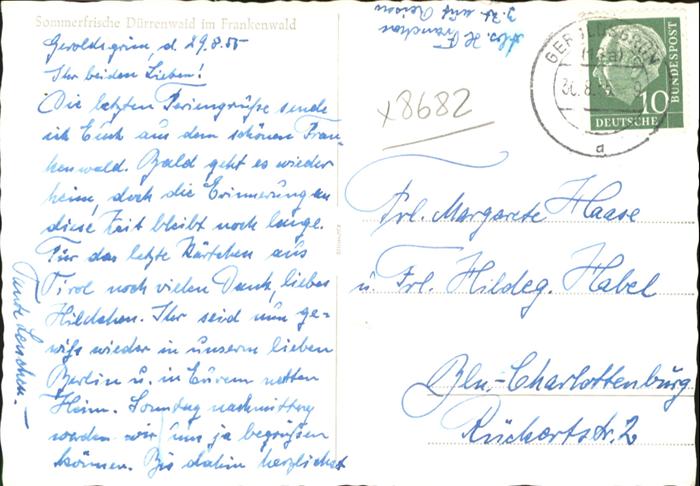 Sommerfrische Dürrenwald im Frankenwald
Geroldsgrün, d. 29.8.55
Ihr beiden Lieben!
Die letzten Feriengrüße sende
ich Euch aus dem schönen Fran-
kenwald. Bald geht es wieder
heim, doch die Erinnerung an
diese Zeit bleibt noch lange.
Für das letzte Kärtchen aus
Tirol noch vielen Dank, liebes
Hildchen. Ihr seid nun ge-
wiß wieder in unserm lieben
Berlin u. in Eurem netten
Heim. Sonntag nachmittag
werden wir uns ja begrüßen
können. Bis dahin herzlichst
Tante Lenchen.
Abs. H. F
z. Zt.
x8682
GEROLDSGRÜN
30.8.
a
DEUTSCHE
BUNDESPOST
10
Frl. Margarete Haase
u Frl. Hildeg. Habel
Bln-Charlottenburg
Rückertstr. 2